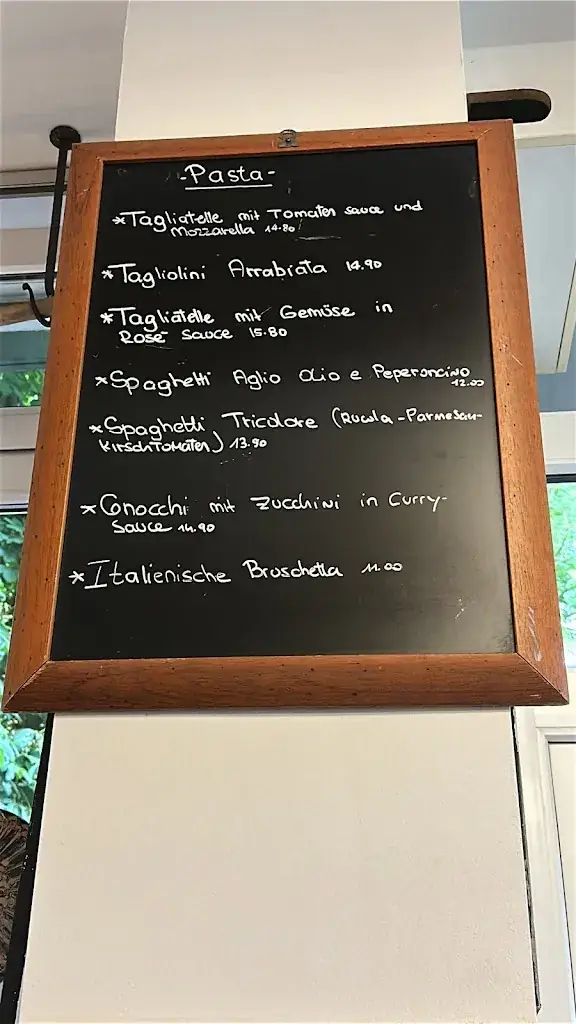 -Pasta-
*Tagliatelle mit Tomaten sauce und
Mozzarella 14.80
*Tagliolini Arrabiata 14.90
*Tagliatelle mit Gemüse in
Rosé sauce 15.80
*Spaghetti Aglio Olio e Peperoncino
12.00
*Spaghetti Tricolore (Rucola-Parmesan-
Kirschtomaten) 13.90
*Gnocchi mit Zucchini in Curry-
Sauce 14.90
*Italienische Bruschetta 11.00